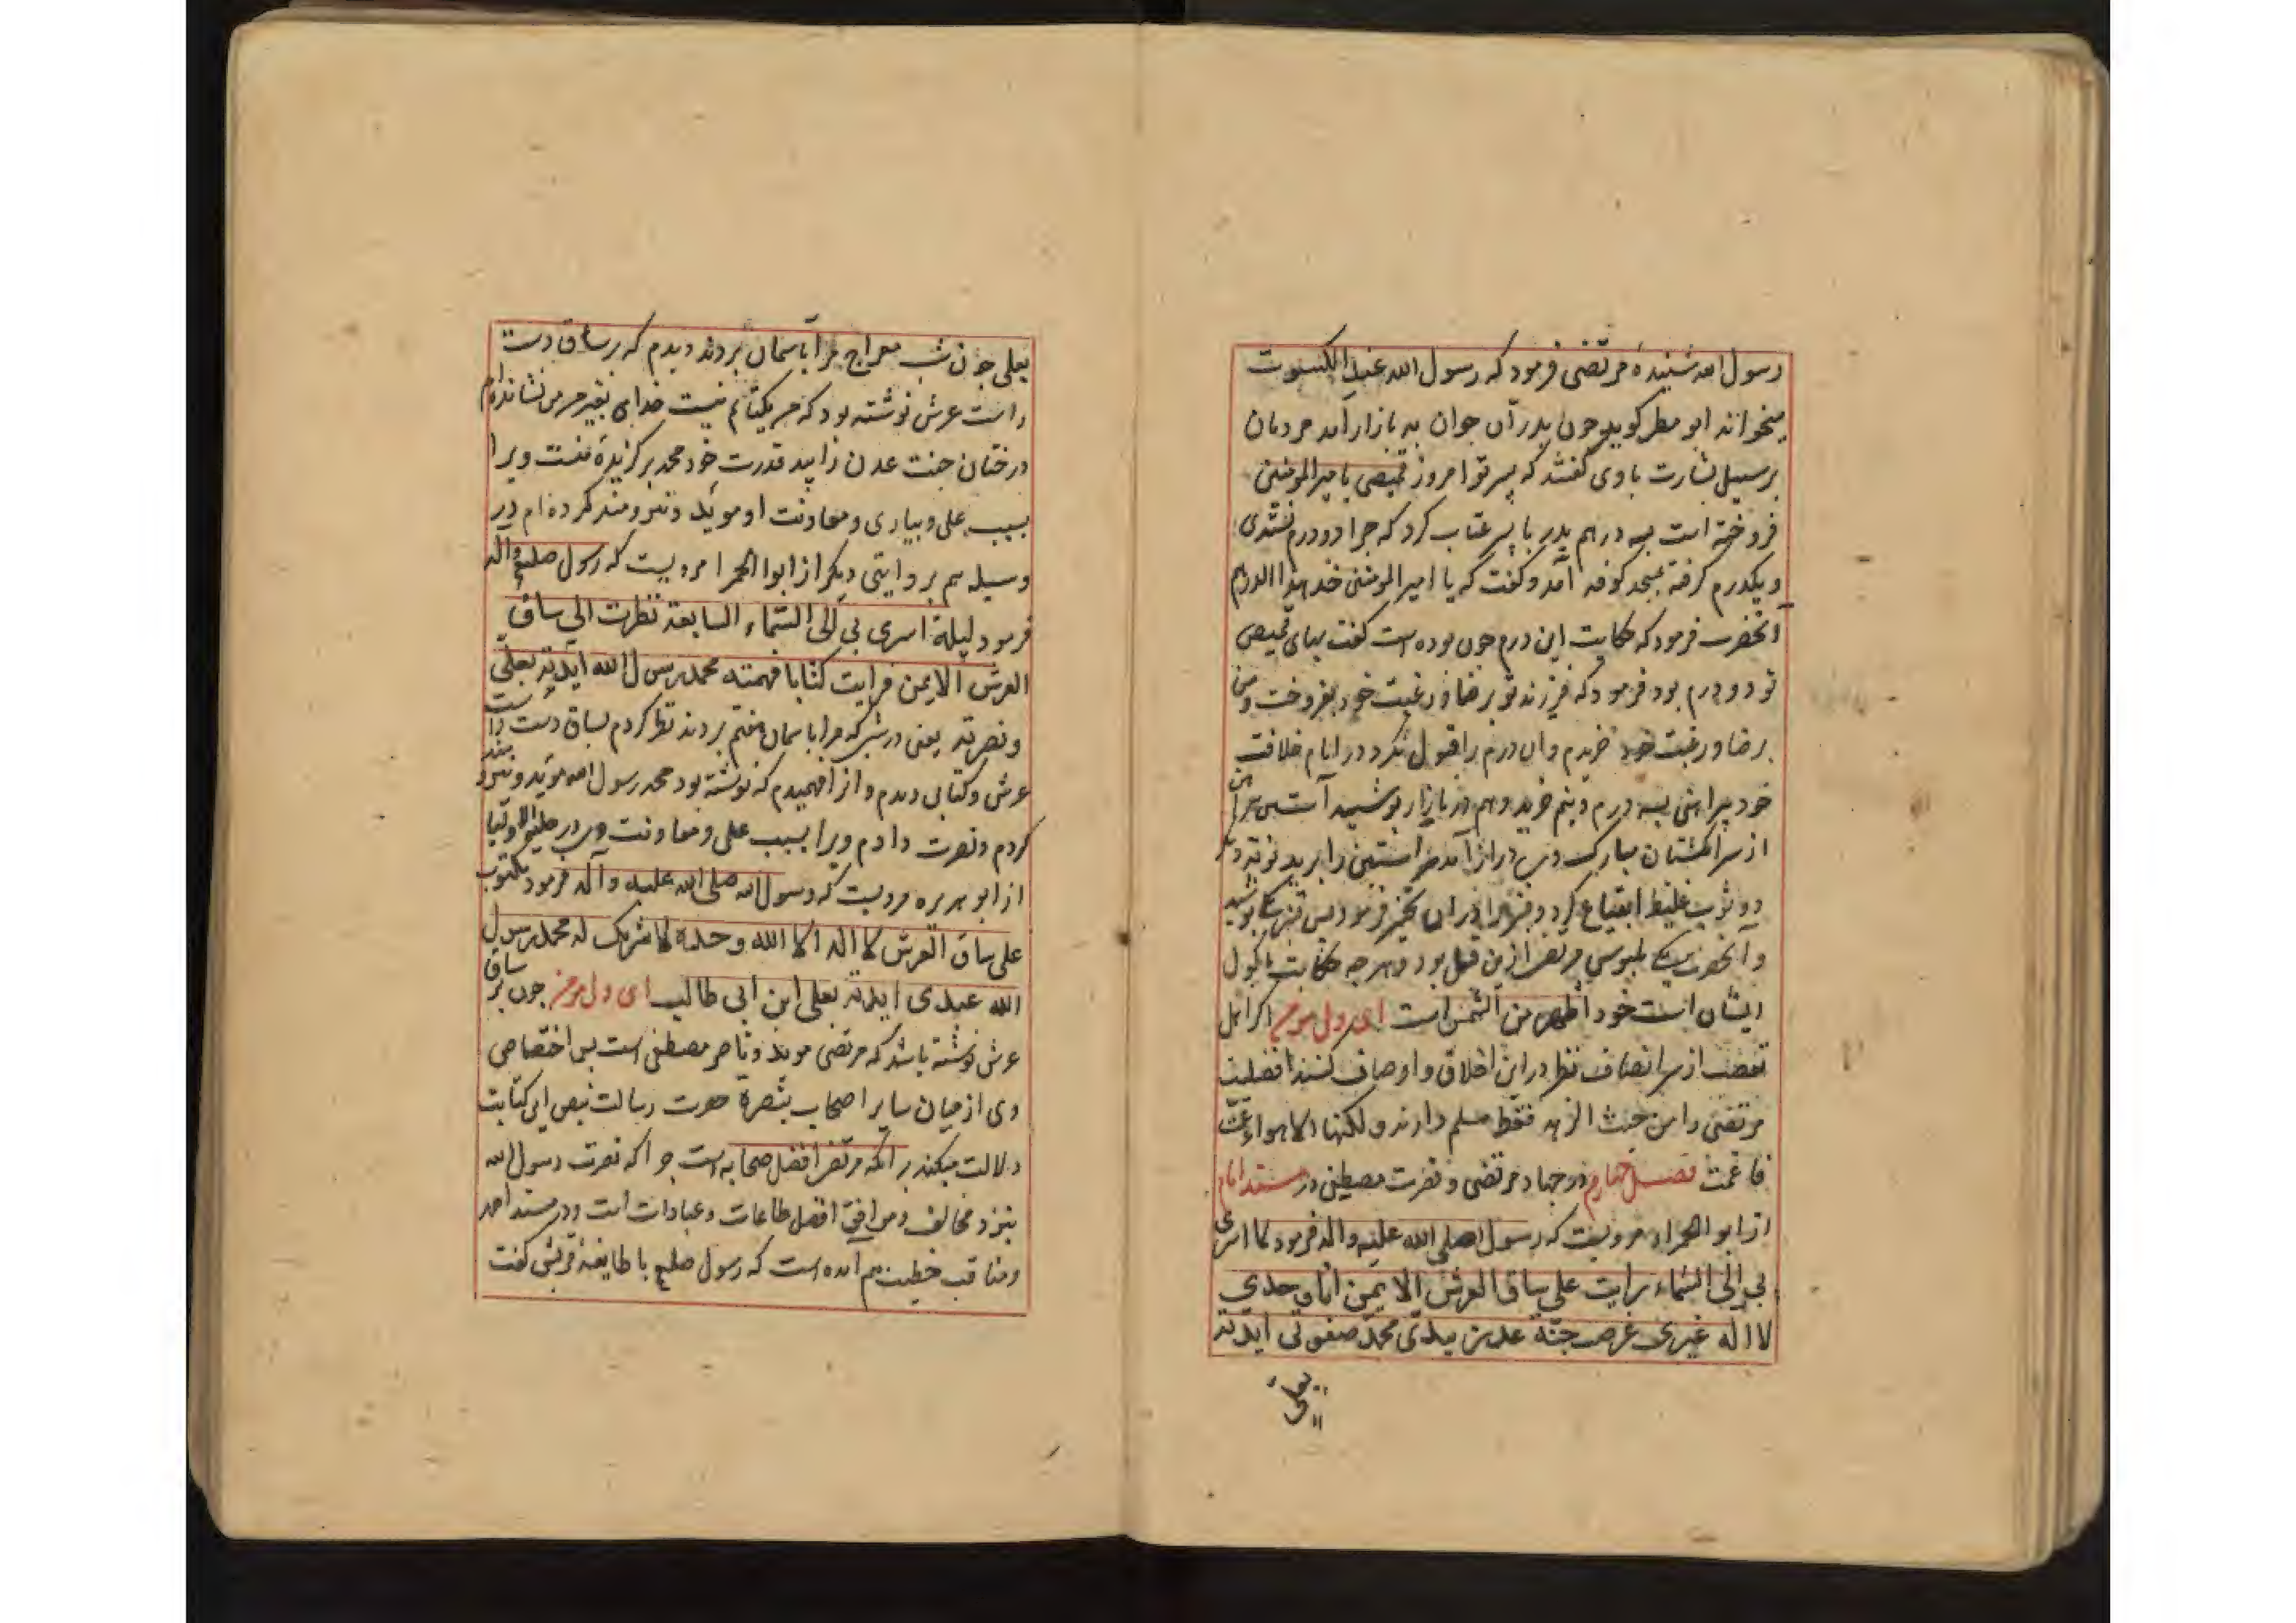 رسول الله شنیدهٔ مرتضی فرمود که رسول الله عند الکسوت
میخواند ابو مطر کوید چون پدر آن جوان به بازار آمد مردمان
بر سبیل بشارت باوی گفتند که پسر تو امروز قمیصی بامیرالمومنین
فروخته است بسه درهم پدر با پسر عتاب کرد که چرا دو درم نستدی
و یکدرم گرفته بمسجد کوفه آمد و گفت که یا امیرالمومنین خذ هذا الدرهم
آنحضرت فرمود که حکایت این درم چون بوده است گفت بهای قمیص
تو دو درم بود فرمود که فرزند تو برضا و رغبت خود بفروخت و من
برضا و رغبت خود خریدم و ان درم را قبول نکرد و در ایام خلافت
خود پیراهنی بسه درم و نیم خرید و هم در بازار پوشید آستین پیراهن
از سر انگشتان مبارک وی دراز آمد سر استین را ببرید نوبتی دیگر
دو ثوب غلیظ ابتیاع کرد و قنبر را در ان مخیر فرمود پس قنبر یکی پوشید
و آنحضرت یکی ملبوس مرتضی ازین قبیل بود و هر چه حکایت ماکول
ایشان است خود اظهر من الشمس است ای دل مومن اگر اهل
تعصب از سر انصاف نظر در این اخلاق و اوصاف کنند افضلیت
مرتضی را من حیث الزهد فقط مسلم دارند و لکنها الاهواء عمت
فاعمت فصل چهارم در جهاد مرتضی و نصرت مصطفی در مسند امام
از ابو الحمراء مرویست که رسول صلی الله علیه واله فرمود لما اسری
بی الی السماء رایت علی ساق العرش الایمن انا وحدی
لا اله غیری غرست جنة عدن بیدی محمد صفوتی ایدته
بعلی
بعلی چون شب معراج مرا بآسمان بردند دیدم که بر ساق دست
راست عرش نوشته بود که من یکتایم نیست خدای بغیر من نشانده‌ام
درختان جنت عدن را بید قدرت خود محمد برگزیدهٔ منست ویرا
بسبب علی و بیاری و معاونت او موید و نیرومند کرده ام در
وسیله هم بروایتی دیگر از ابوا الحمرا مرویست که رسول صلی و آله
فرمود لیلة اسری بی الی السماء السابعة نظرت الی ساق
العرش الایمن فرایت کتابا فهمته محمد رسول الله ایدته بعلی
و نصرته یعنی در شبی که مرا باسمان هفتم بردند نظر کردم بساق دست راست
عرش و کتابی دیدم و از ان فهمیدم که نوشته بود محمد رسول الله موید و نیرومند
کردم و نصرت دادم ویرا بسبب علی و معاونت وی در حلیة الاولیا
از ابو هریره مرویست که رسول الله صلی الله علیه و آله فرمود مکتوب
علی ساق العرش لا اله الا الله وحده لا شریک له محمد رسول
الله عبدی ایدته بعلی ابن ابی طالب ای دل مومن چون بر ساق
عرش نوشته باشد که مرتضی موید و ناصر مصطفی است پس اختصاص
وی از میان سایر اصحاب بنصرة حضرت رسالت بنص این کتابت
دلالت میکند بر آنکه مرتضی افضل صحابه است چرا که نصرت رسول الله
بنزد مخالف و موافق افضل طاعات و عبادات است و در مسند احمد
و مناقب خطیب هم آمده است که رسول صلعم با طایفهٔ قریش گفت